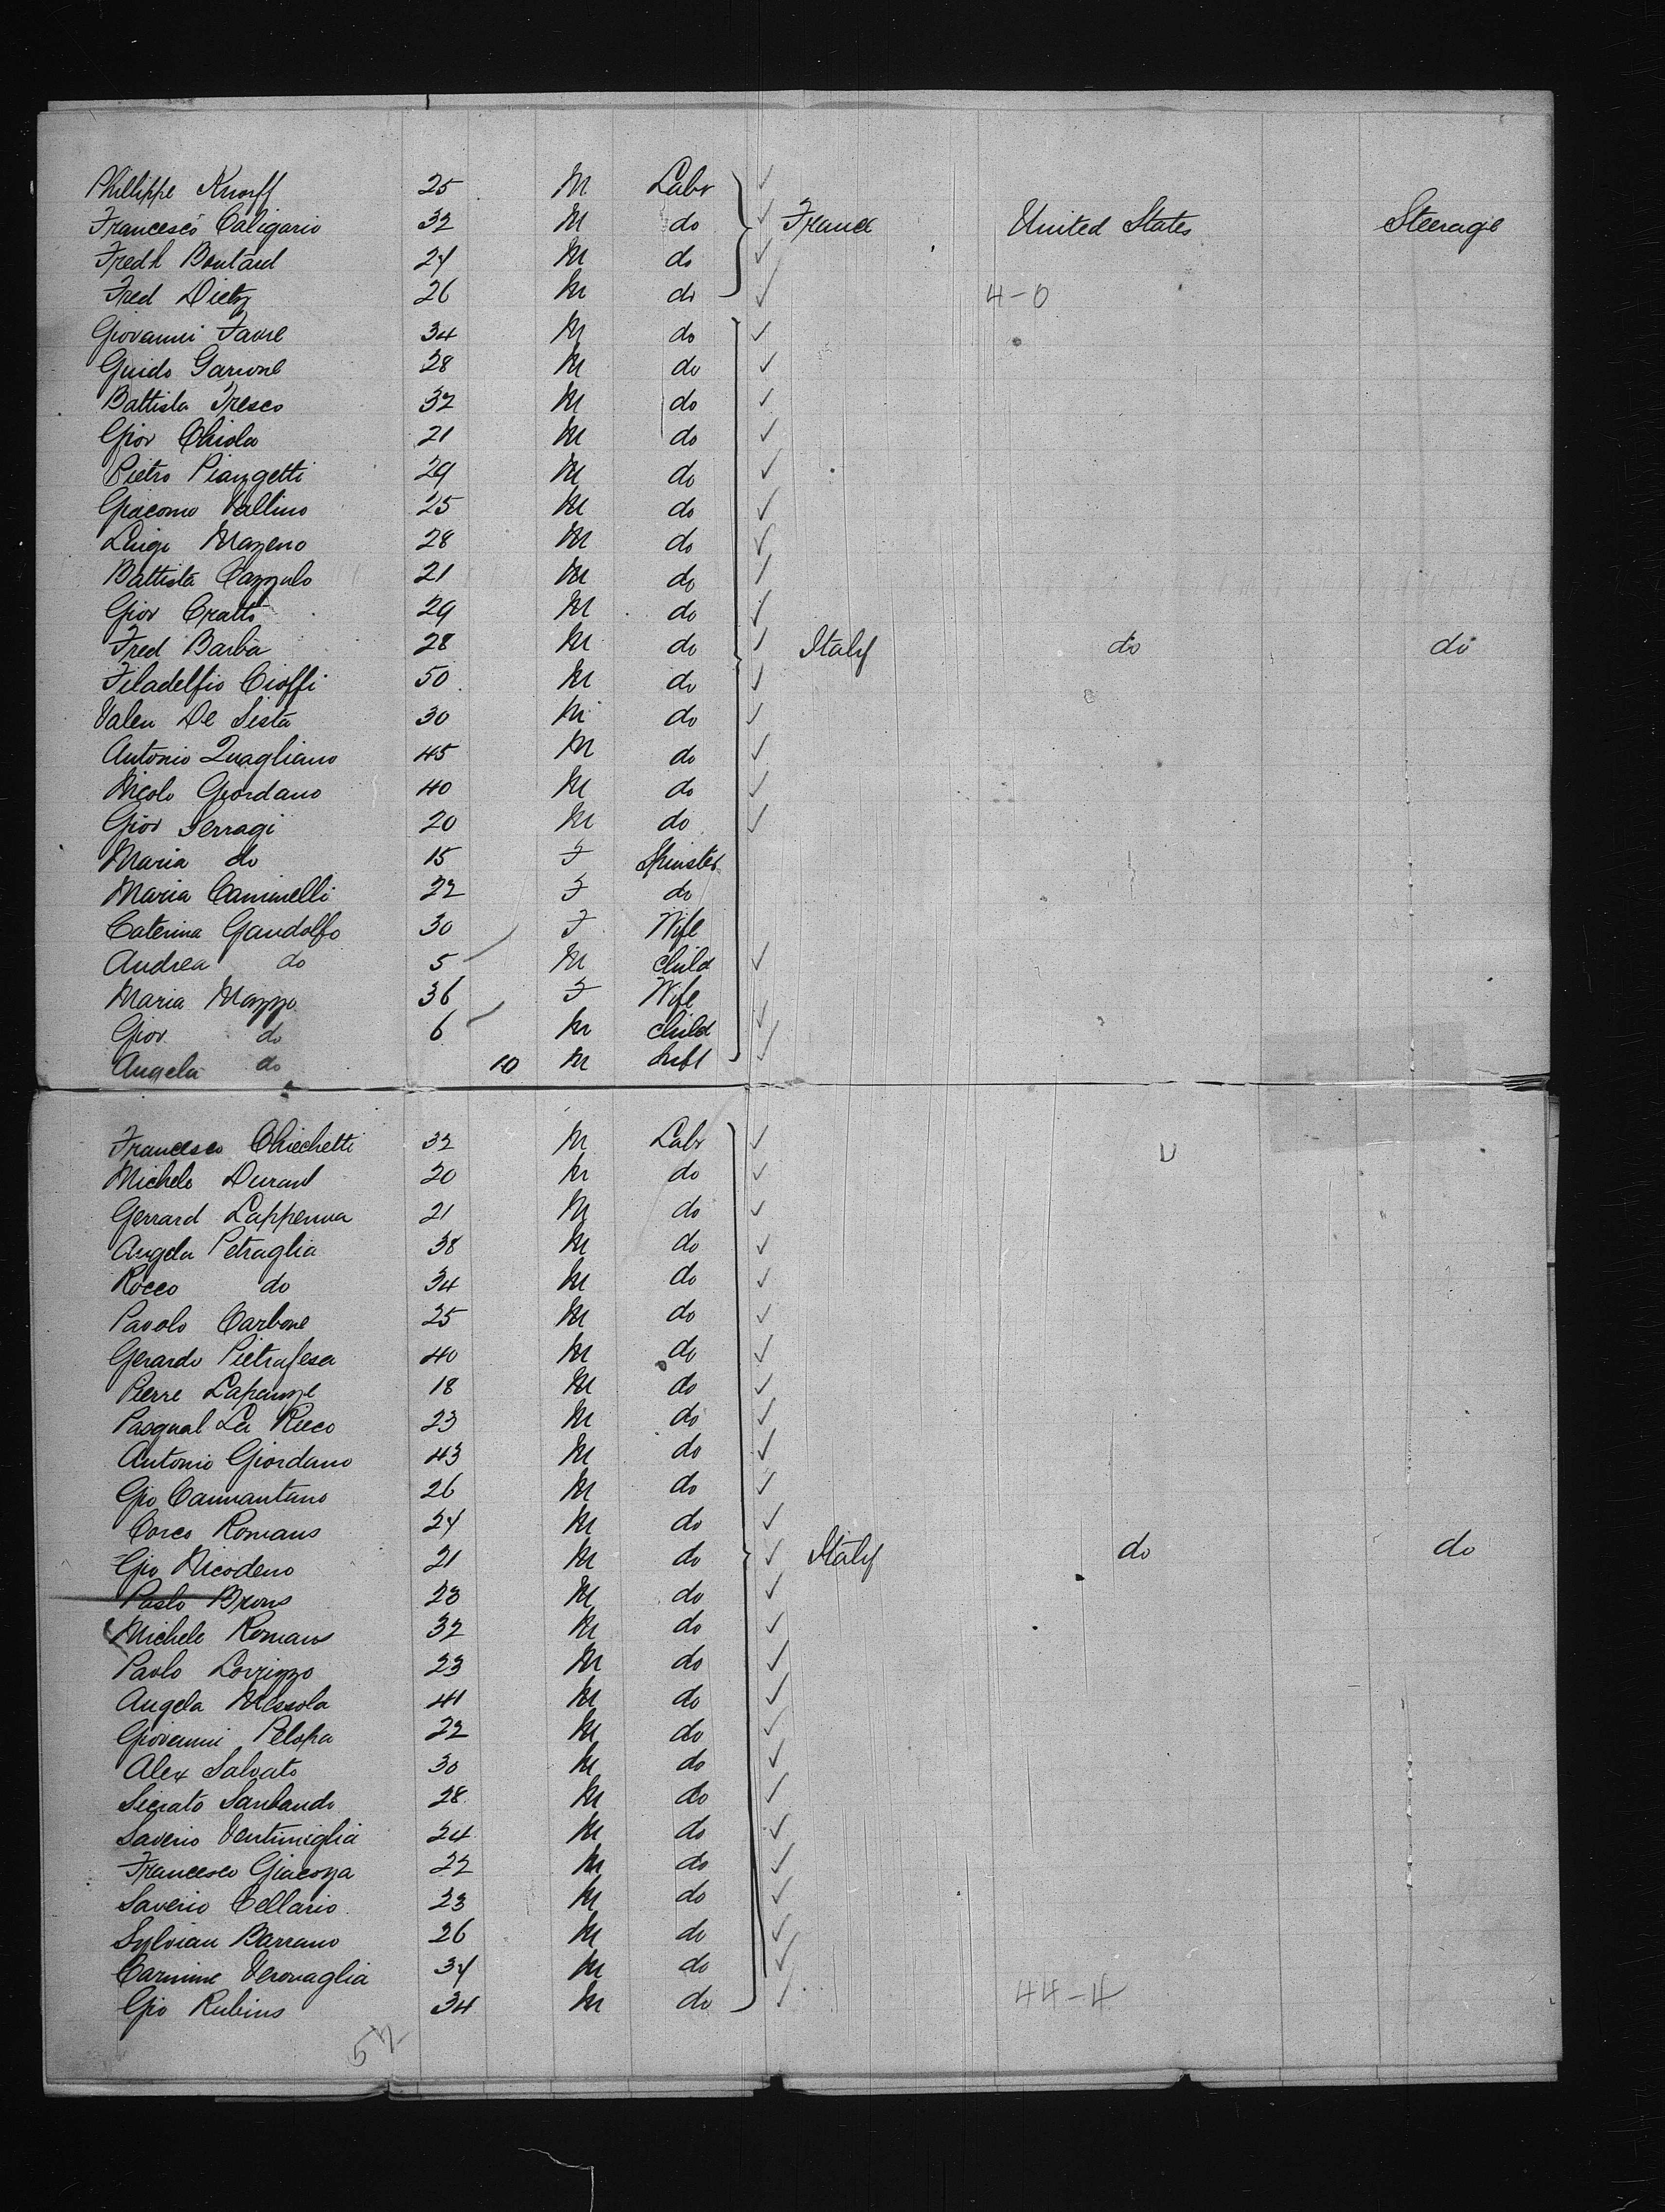 Phillippe Knorff 25 M Labr
Francesco Caligario 32 M do France United States Steerage
Fredk Boutard 24 M do
Fred Dietz 26 M do 4-0
Giovanni Favre 34 M do
Guido Garrone 28 M do
Battista Fresco 32 M do
Giov Chiola 21 M do
Pietro Pianzetti 29 M do
Giacomo Vallino 25 M do
Luigi Mazeno 28 M do
Battista Cazzulo 21 M do
Giov Cratto 29 M do
Fred Barba 28 M do Italy do do
Filadelfio Cioffi 50 M do
Valen De Sista 30 M do
Antonio Quagliano 45 M do
Nicolo Giordano 40 M do
Giov Serragi 20 M do
Maria do 15 F Spinster
Maria Caminelli 22 F do
Caterina Gandolfo 30 F Wife
Andrea do 5 M Child
Maria Mazzo 36 F Wife
Giov do 6 M Child
Angela do 10 M Inft
Francesco Chiechetti 32 M Labr
Michele Durand 20 M do
Gerrard Lappenna 21 M do
Angela Petraglia 38 M do
Rocco do 34 M do
Pavolo Carbone 25 M do
Gerardo Pietrafesa 40 M do
Pierre 18 M do
Pasqual La Rieco 23 M do
Antonio Giordano 43 M do
Gio Cannantano 26 M do
Corco Romano 24 M do
Gio Nicodeno 21 M do Italy do do
Paolo Brons 23 M do
Michele Romano 32 M do
Paolo Lovrizzo 23 M do
Angela Messola 41 M do
Giovanni Pelopa 22 M do
Alex Salvato 30 M do
Sicrato Santando 28 M do
Saverio Ventimiglia 24 M do
Francesco Giacoza 22 M do
Saverio Cellario 23 M do
Sylvian Barrano 26 M do
Carmine Verovaglia 34 M do
Gio Rubino 34 M do 44-4
52